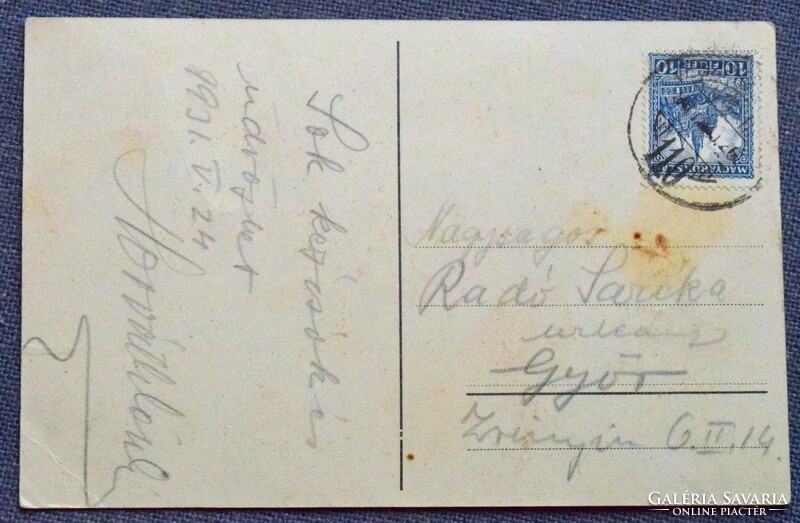 Sok kézcsók és
üdvözlet
1931. V. 24
Nagyságos
Radó Sarika
urleány
Győr
Zrinyi u 6. II. 14.
10 FILLÉR 10
MAGYARORSZÁG
GALÉRIA SAVARIA
ONLINE PIACTÉR